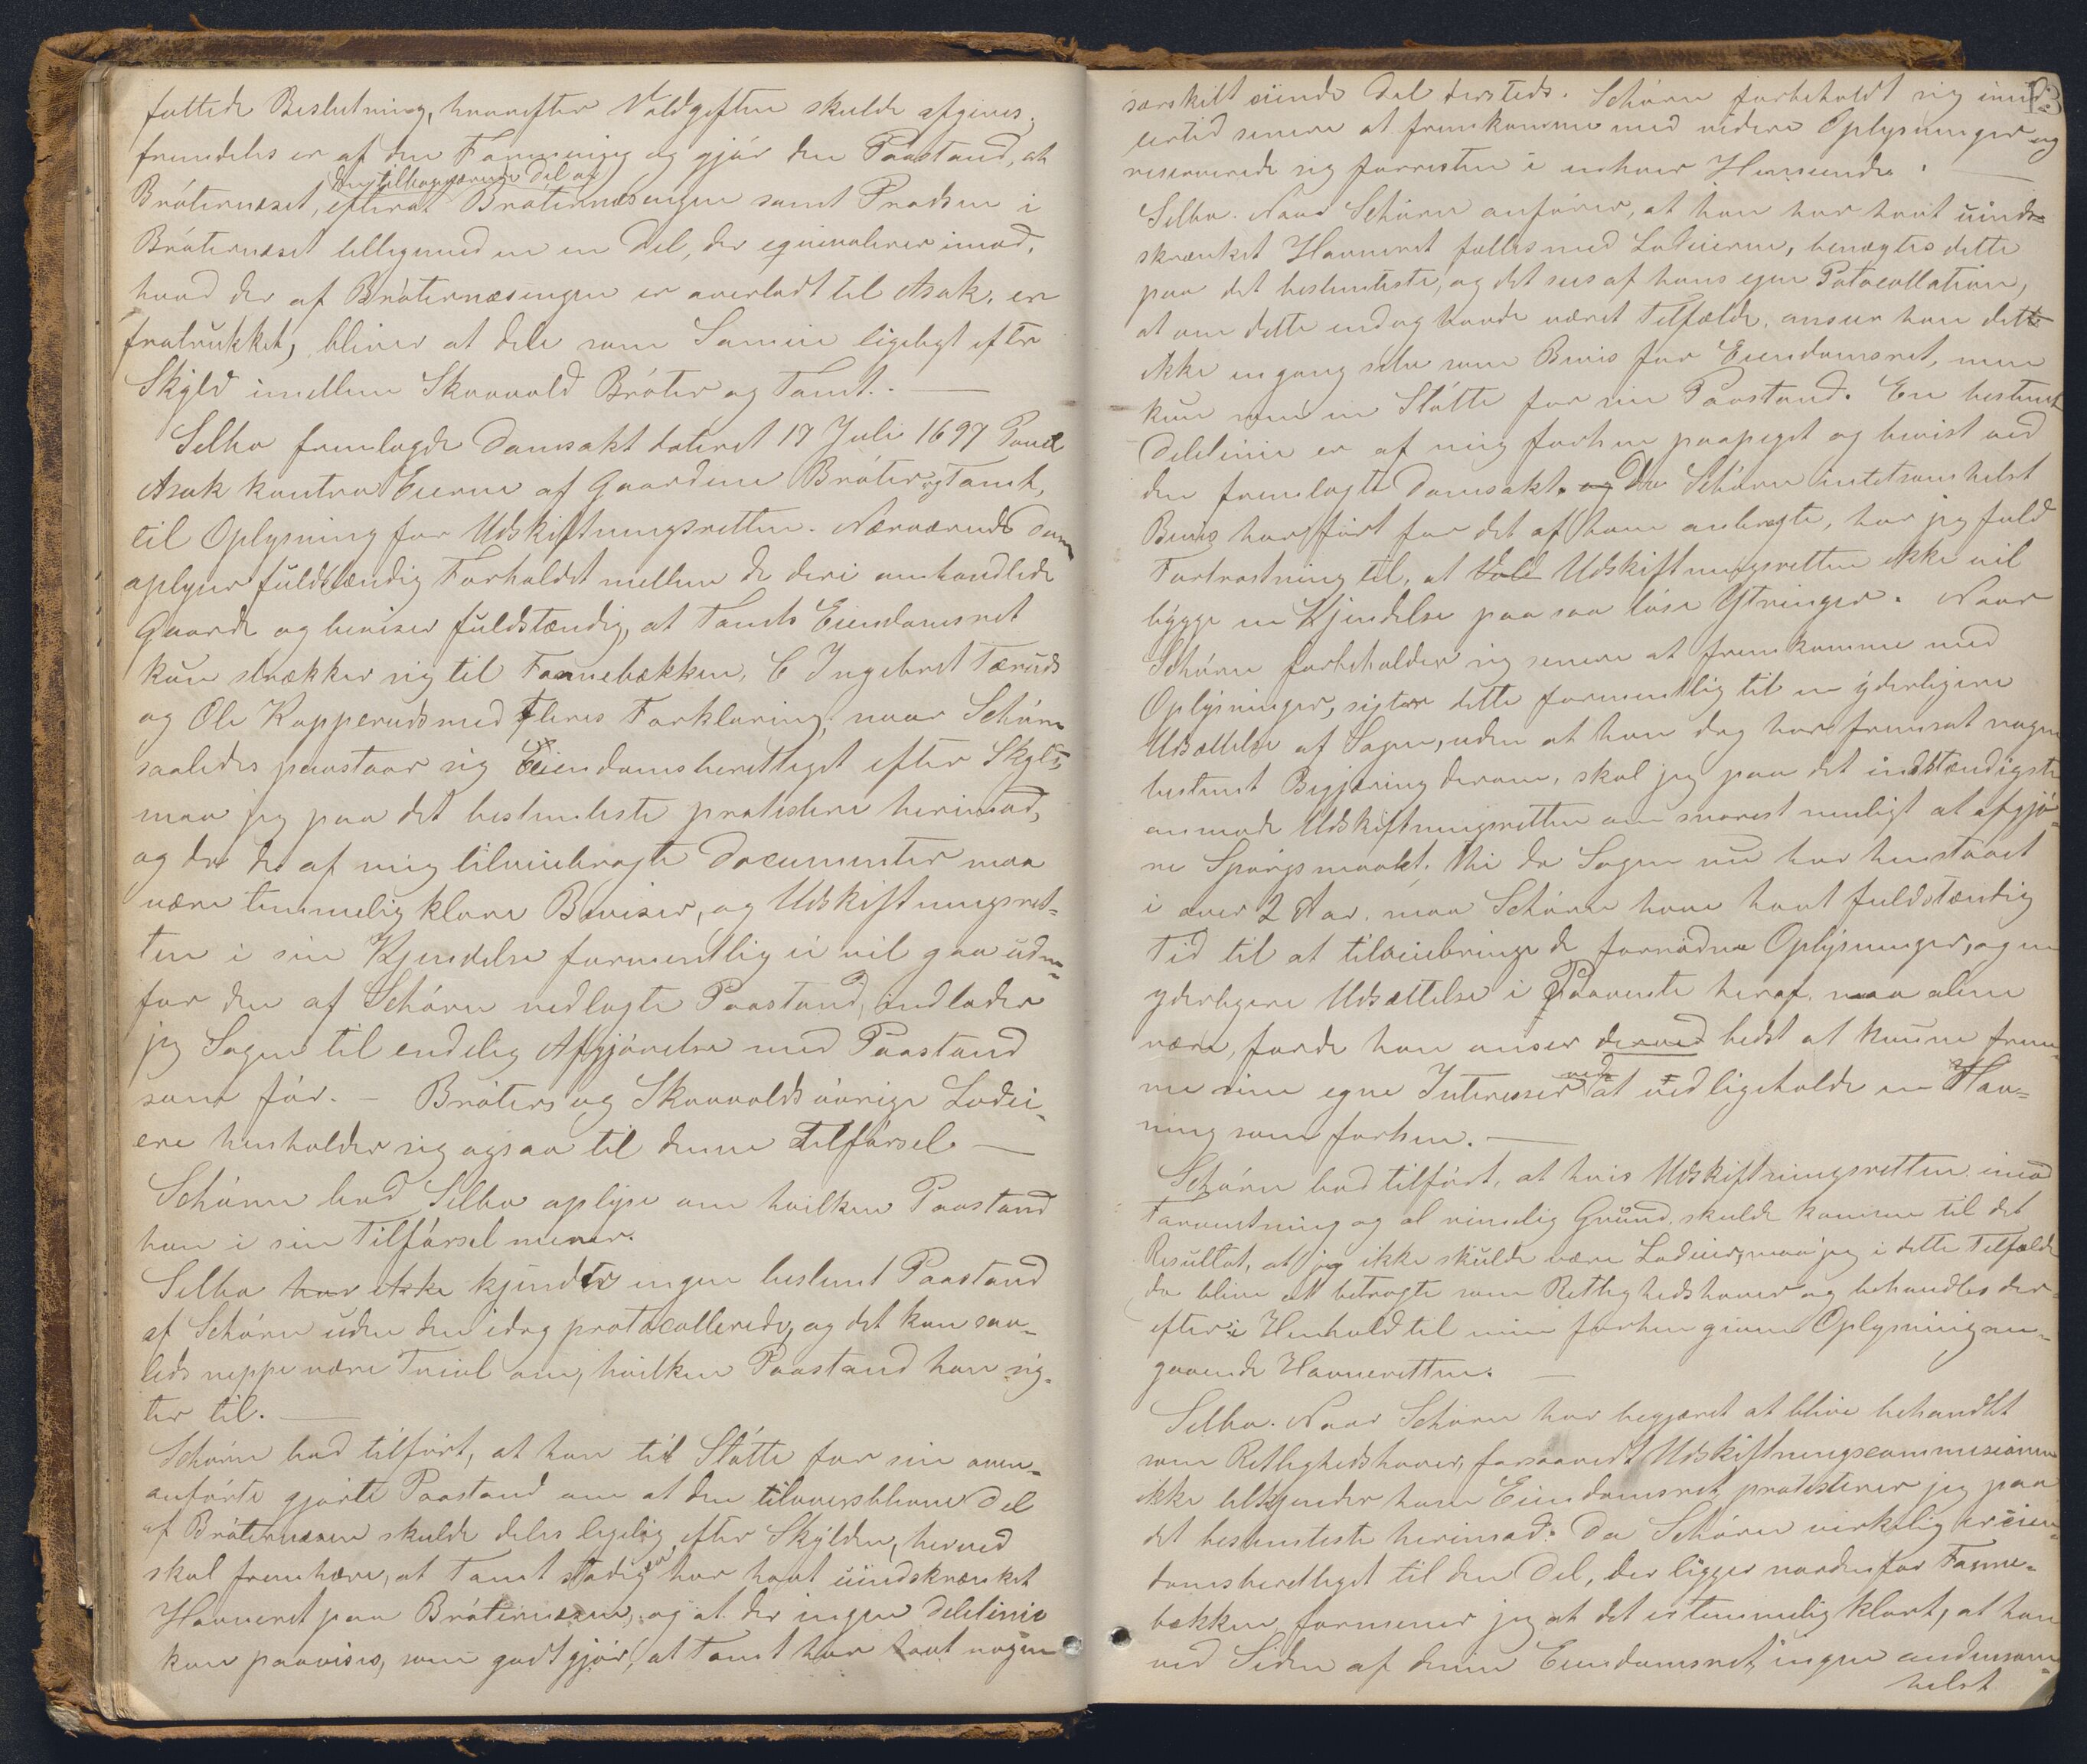 fattede Beslutning, hvorefter Voldgiften skulde afgives,
fremdeles er af den Formening og gjør den Paastand, at
den tilbageværende Del af
Bråternæset, efterat Bråternæsengen samt Pladsen i
Bråternæset tilligemed en en Del, der eqvivalerer imod,
hvad der af Bråternæsengen er overladt til Asak, er
fratrukket, bliver at dele som Sameie ligeligt efter
Skyld imellem Skovvold Bråter og Tomt. —
Selbo fremlagde Domsakt dateret 17 Juli 1697 Povel
Asak kontra Eierne af Gaardene Bråter og Tomt,
til Oplysning for Udskiftningsretten. Nærværende Dom
oplyser fuldstændig Forholdet mellem de deri omhandlede
Gaarde og beviser fuldstændig, at Tomts Eiendomsret
kun strækker sig til Fannebækken, C Ingebret Tæruds
og Ole Kopperuds med fleres Forklaring; naar Schøren
saaledes paastaar sig Eiendomsberettiget efter Skyld,
maa jeg paa det bestemteste protestere herimod,
og da de af mig tilveiebragte Documenter maa
være temmelig klare Beviser, og Udskiftningsret-
ten i sin Kjendelse formentlig ei vil gaa uden-
for den af Schøren nedlagte Paastand, indlader
jeg Sagen til endelig Afgjørelse med Paastand
som før. — Bråters og Skovvolds øvrige Lodei-
ere henholder sig ogsaa til denne Tilførsel —
Schøren bad Selbo oplyse om hvilken Paastand
han i sin Tilførsel mener.
Selbo har ikke kjendte ingen bestemt Paastand
af Schøren uden den idag protocollerede, og det kan saa-
leds neppe være Tvivl om, hvilken Paastand han sig-
ter til. —
Schøren bad tilført, at han til Støtte for sin oven-
anførte gjorte Paastand om at den tiloversblevne Del
af Bråternæsen skulde deles ligelig efter Skylden, herved
skal fremhæve, at Tomt stadig har havt uindskrænket
Havneret paa Bråternæsen, og at der ingen Delelinie
kan paavises, som godtgjør, at Tomt har havt nogen
særskilt eiende Del dersteds. Schøren forbeholdt sig imid-
lertid senere at fremkomme med videre Oplysninger og
reserverede sig forresten i enhver Henseende. —
Selbo. Naar Schøren anfører, at han har havt uind-
skrænket Havneret fælles med Lodeierne, benægtes dette
paa det bestemteste, og det sees af hans egen Potocollation,
at om dette endog havde været Tilfælde, anseer han dette
ikke engang selv som Bevis for Eiendomsret, men
kun som en Støtte for sin Paastand. En bestemt
Delelinie er af mig forhen paapeget og bevist ved
den fremlagte Domsakt. og Da Schøren intetsomhelst
Bevis har ført for det af ham anbragte, har jeg fuld
Fortrøstning til, at Vold Udskiftningsretten ikke vil
bygge en Kjendelse paa saa løse Ytringer. Naar
Schøren forbeholder sig senere at fremkomme med
Oplysninger, sigter dette formentlig til en yderligere
Udsættelse af Sagen, uden at han dog har fremsat nogen
bestemt Begjæring derom, skal jeg paa det indstændigste
anmode Udskiftningsretten om snarest muligt at afgjø-
re Spørgsmaalet. Thi da Sagen nu har henstaaet
i over 2 Aar, maa Schøren have havt fuldstændig
Tid til at tilveiebringe de fornødne Oplysninger, og en
yderligere Udsættelse i Paavente heraf maa alene
være, fordi han anser derved bedst at kunne frem-
me sine egne Interesser ved at vedligeholde en Hav-
ning som forhen. —
Schøren bad tilført, at hvis Udskiftningsretten imod
Forventning og al rimelig Grund, skulde komme til det
Resultat, at jeg ikke skulde være Lodeier, maa jeg i dette Tilfælde
da blive at betragte som Rettighedshaver og behandles der-
efter i Henhold til min forhen givne Oplysning an-
gaaende Havneretten. —
Selbo. Naar Schøren har begjæret at blive behandlet
som Rettighedshaver, forsaavidt Udskiftningscommissionen
ikke tilkjender ham Eiendomsret, protesterer jeg paa
det bestemteste herimod. Da Schøren virkelig er eien-
domsberettiget til den Del, der ligger nordenfor Fanne-
bækken formener jeg at det er temmelig klart, at han
ved Siden af denne Eiendomsret, ingen andensom-
helst